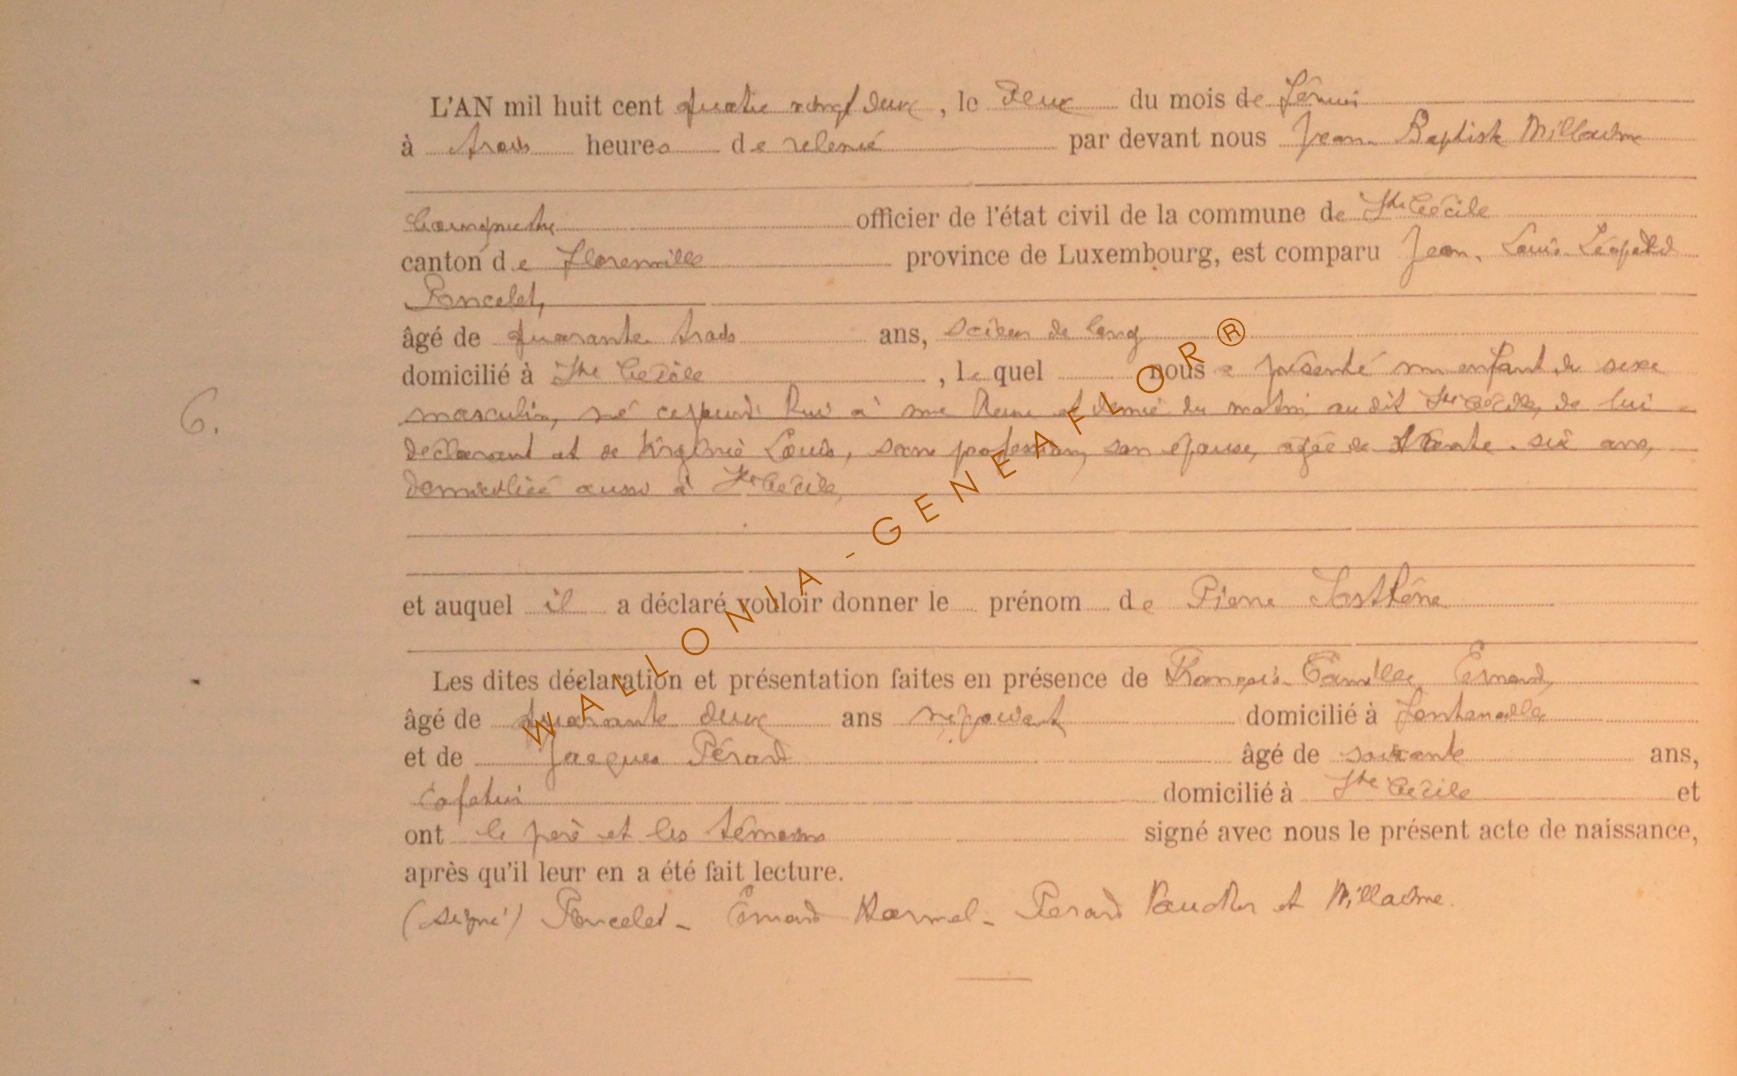 L'AN mil huit cent quatre vingt deux, le deux du mois de
à trois heures de relevé par devant nous Jean Baptiste
officier de l'état civil de la commune de Ste Cécile
canton de Florenville province de Luxembourg, est comparu Jean Louis Léopold
Poncelet,
âgé de quarante trois ans, scieur de long
domicilié à Ste Cécile, lequel nous a présenté un enfant du sexe
6. masculin, né à une heure et demie du matin au dit Ste Cécile, de lui
déclarant et de Virginie Louis, sans profession, son épouse, agée de trente six ans,
domiciliée aussi à Ste Cécile,
et auquel il a déclaré vouloir donner le prénom de Pierre Sosthène
Les dites déclaration et présentation faites en présence de François Camille
âgé de quarante deux ans domicilié à Fontenoille
et de Jacques Pérard âgé de soixante ans,
domicilié à Ste Cécile et
ont le père et les témoins signé avec nous le présent acte de naissance,
après qu'il leur en a été fait lecture.
(signé) Poncelet - Pérard et
WALLONIA-GENEAFLOR®